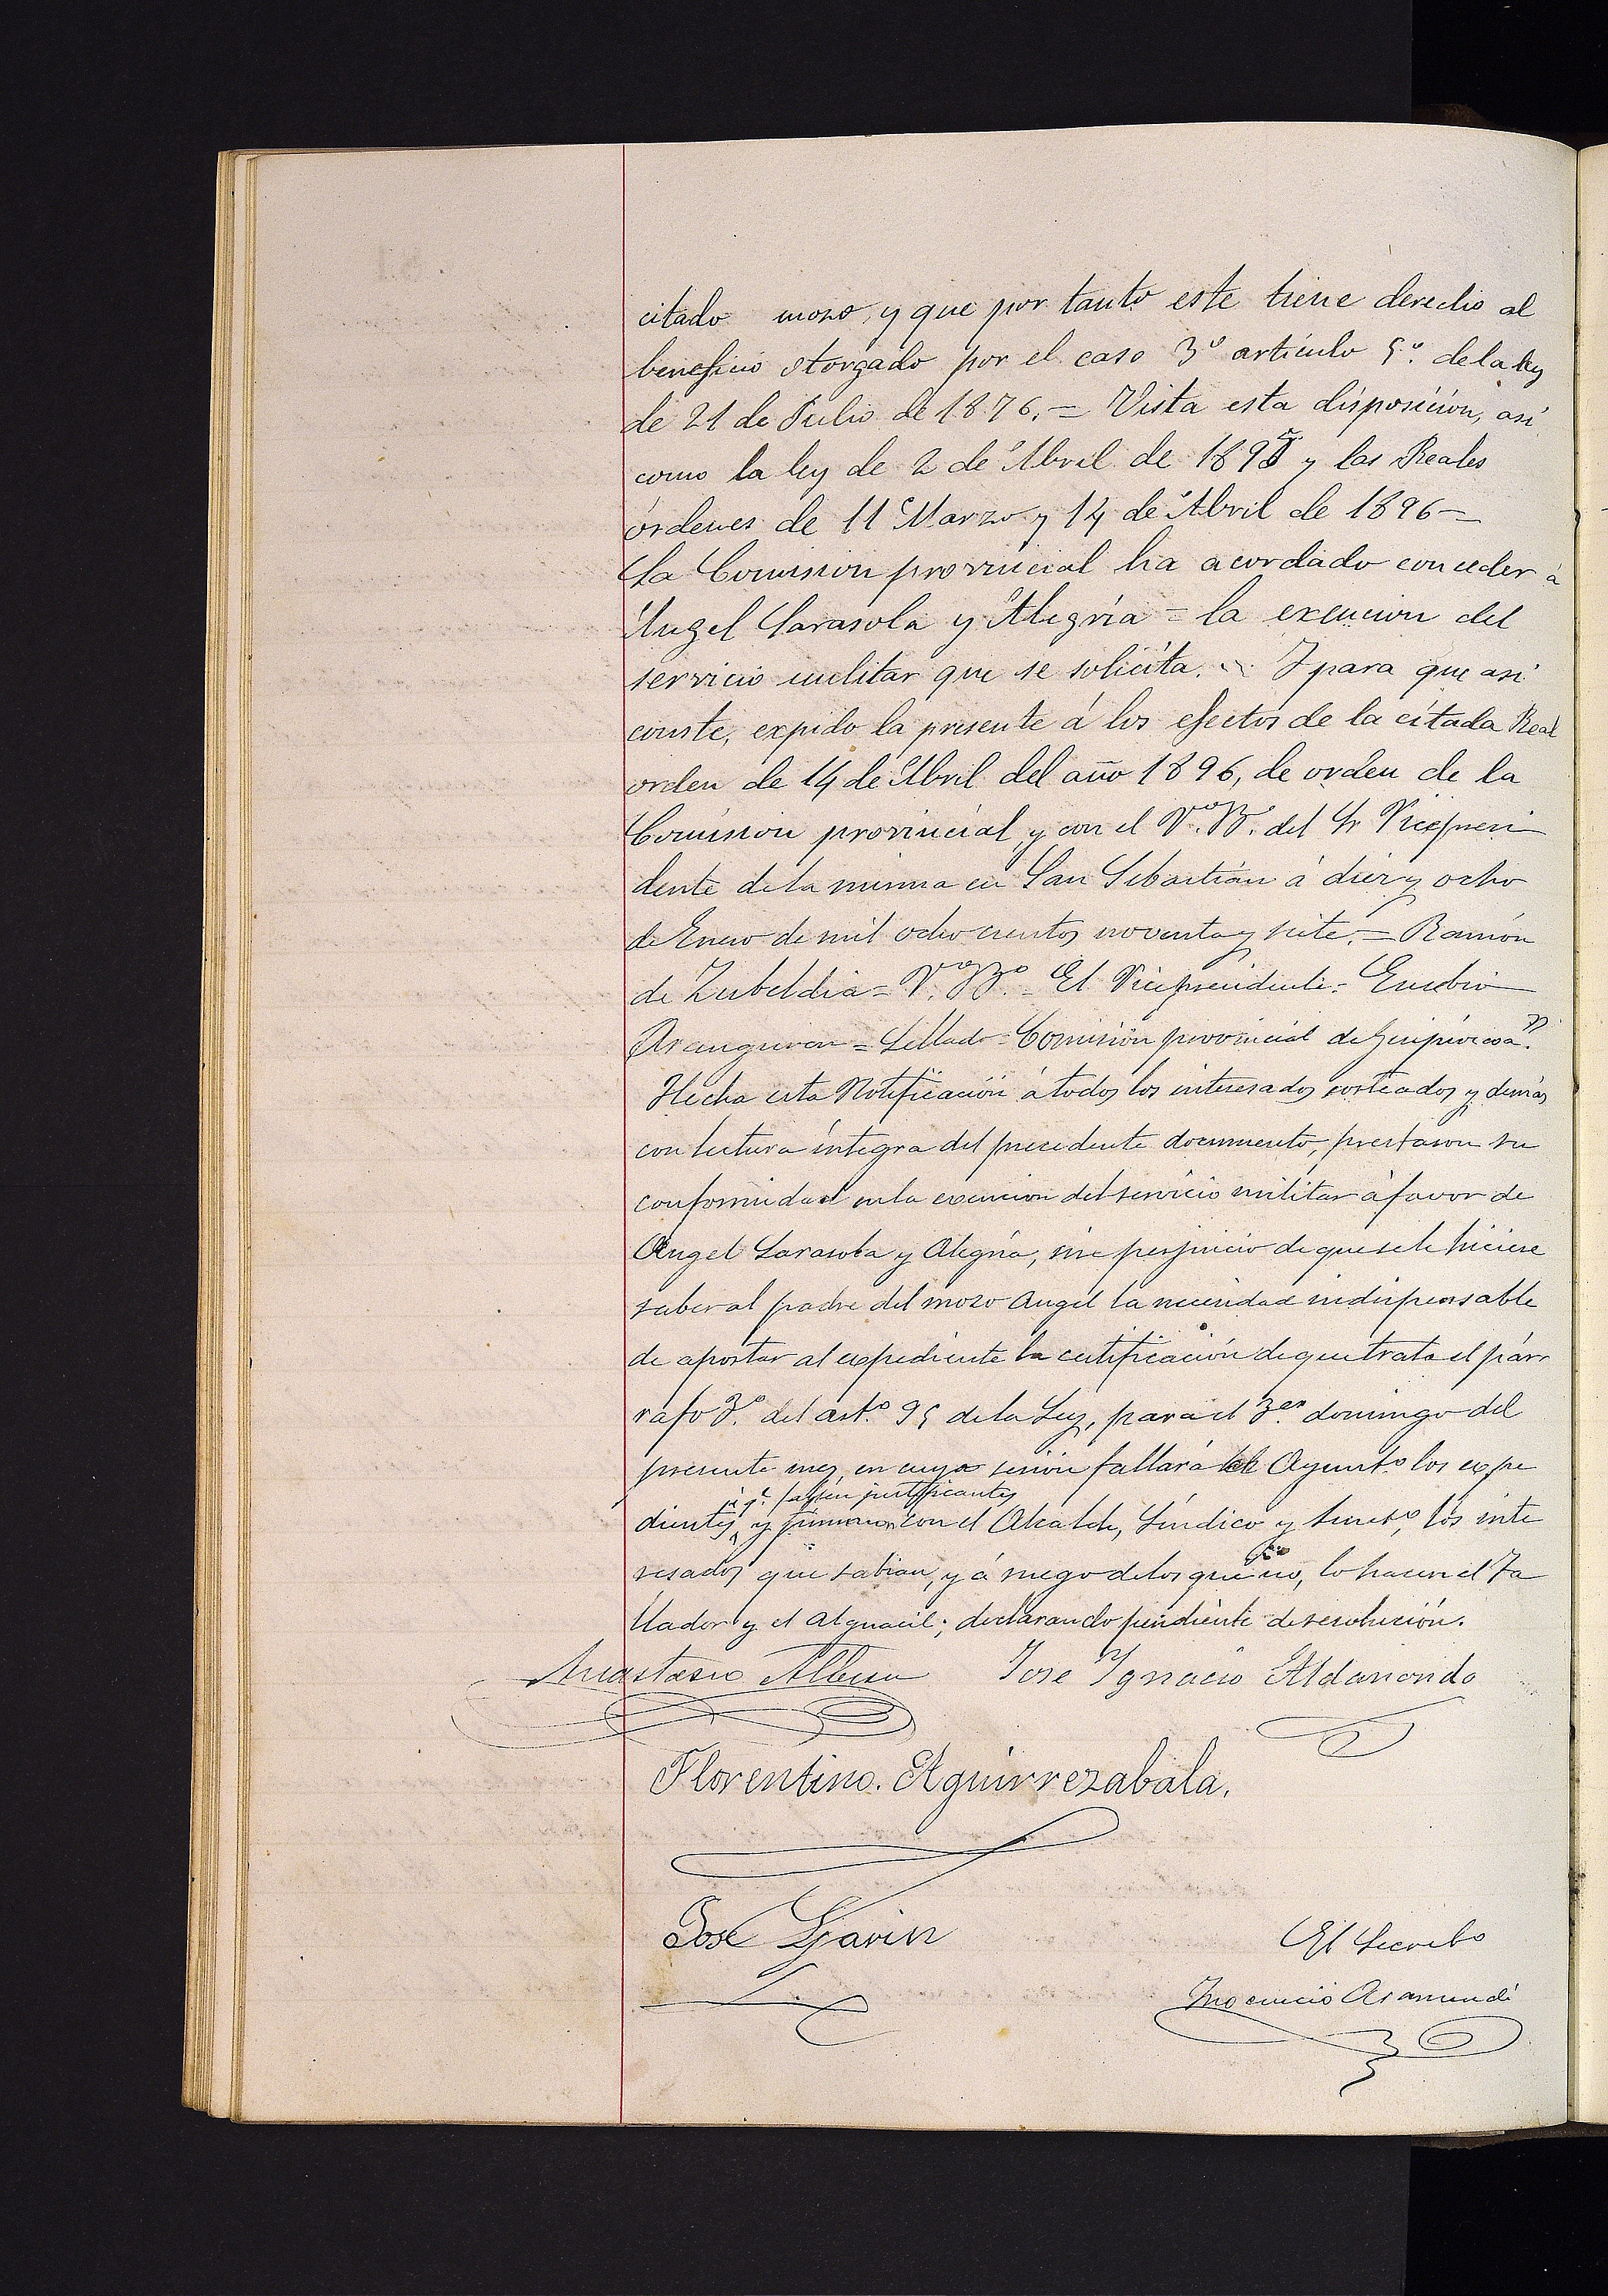 citado mozo, y que por tanto este tiene derecho al
beneficio otorgado por el caso 3º artículo 5º. de la ley
de 21 de Julio de 1876. = Vista esta disposición, asi
como la ley de 2 de Abril de 1895 y las Reales
órdenes de 11 Marzo y 14 de Abril de 1896 =
La Comision provincial ha acordado conceder á
Angel Sarasola y Alegría = la exencion del
servicio militar que se solicita. = Y para que asi
conste, expido la presente á los efectos de la citada Real
orden de 14 de Abril del año 1896, de orden de la
Comision provincial, y con el Vº. Bº. del Sr Vicepresi
dente de la misma en San Sebastián á diez y ocho
de Enero de mil ochocientos noventa y siete. = Ramón
de Zubeldia = Vº. Bº. = El Vicepresidente = Eusebio
Aranguren = Sellado = Comisión provincial de Guipúzcoa."
Hecha esta Notificación á todos los interesados sorteados y demás
con lectura íntegra del precedente documento, prestaron su
conformidad en la exencion del servicio militar á favor de
Angel Sarasola y Alegria, sin perjuicio de que se le hiciese
saber al padre del mozo Angel la necesidad indispensable
de aportar al expediente la certificación de que trata el párr
rafo 3º. del artº. 95 de la Ley, para el 3er. domingo del
presente mes, en cuya sesión fallará el Ayuntº los expe
justificantes
dientes, y firmaron con el Alcalde, Síndico y Secretº, los inte
resados que sabian, y á ruego de los que no, lo hacen el Ta
llador y el Alguacil; declarando pendiente de resolución.
Anastasio Albisu José Ignacio Aldanondo
Florentino. Aguirrezabala.
José Garin
El Secretº
Inocencio Aramendi